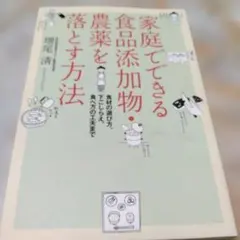 家庭でできる
食品添加物・
農薬を
落とす方法
食材の選び方、
下ごしらえ、
食べ方の工夫まで
増尾 清